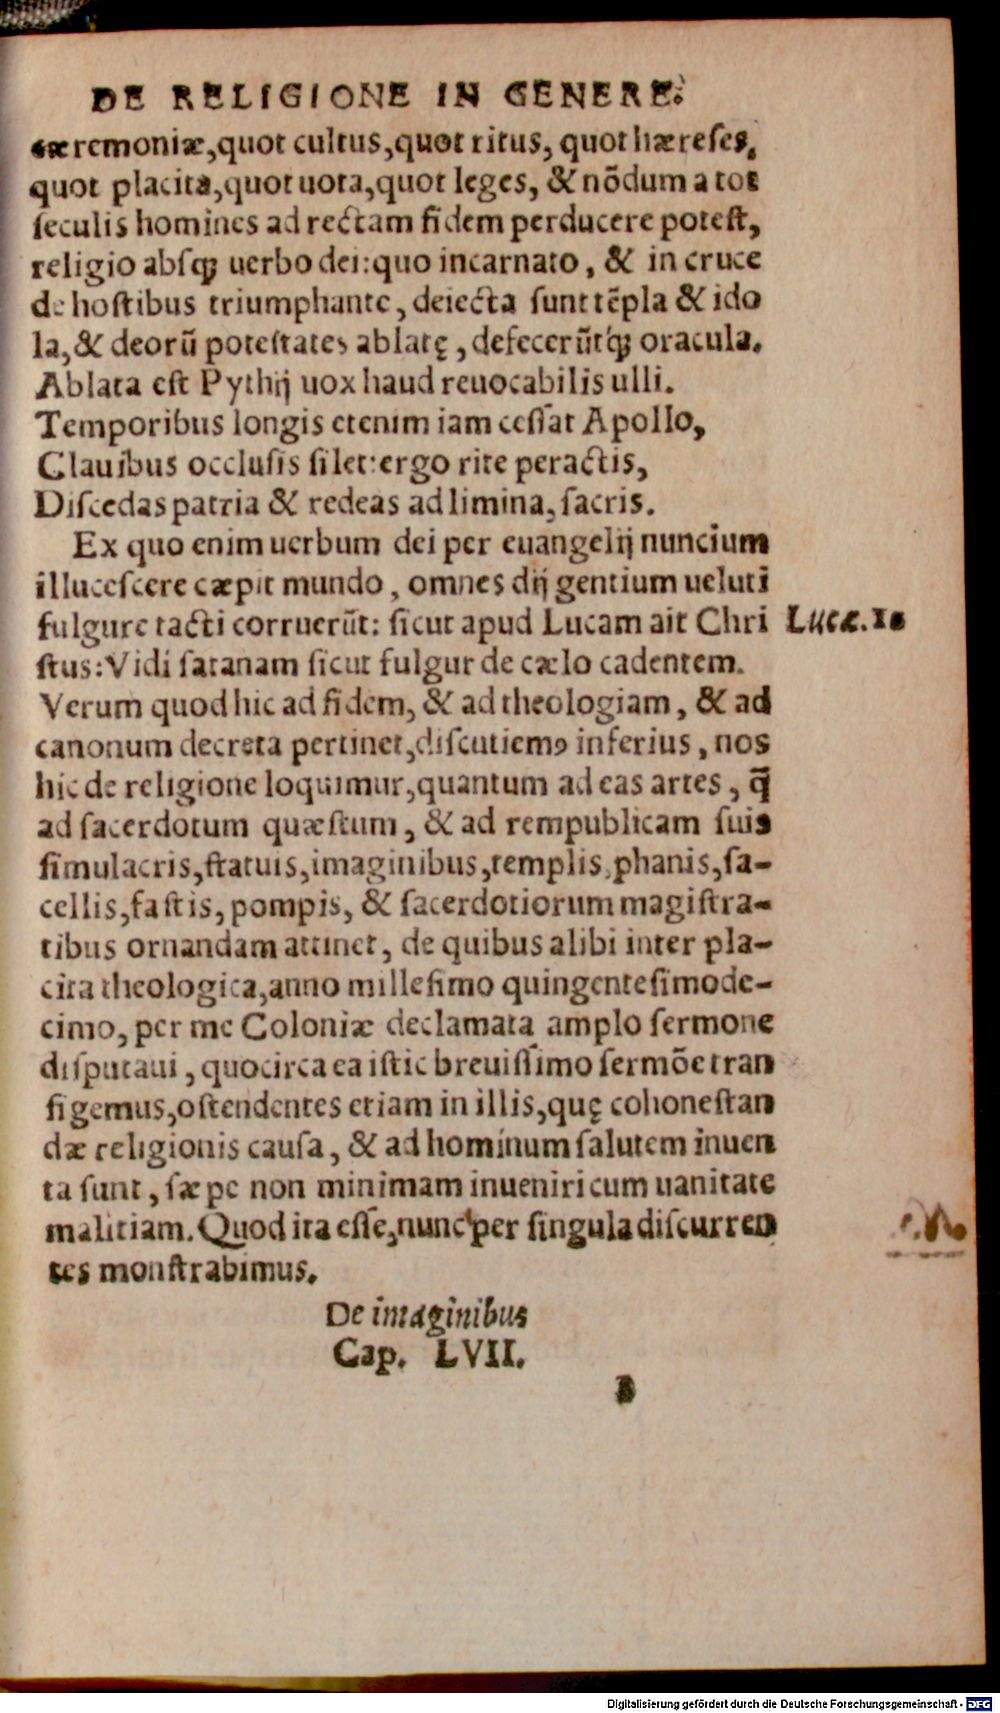 DE RELIGIONE IN GENERE.
cæremoniæ,quot cultus,quot ritus, quot hæreſes,
quot placita,quot uota,quot leges, & nõdum a tot
ſeculis homines ad rectam fidem perducere poteſt,
religio abſqꝫ uerbo dei:quo incarnato, & in cruce
de hoſtibus triumphante, deiecta ſunt tẽpla & ido
la,& deorũ poteſtates ablatę, defecerũtqꝫ oracula.
Ablata eſt Pythij uox haud reuocabilis ulli.
Temporibus longis etenim iam ceſſat Apollo,
Clauibus occluſis ſilet:ergo rite peractis,
Diſcedas patria & redeas ad limina, ſacris.
Ex quo enim uerbum dei per euangelij nuncium
illuceſcere cæpit mundo, omnes dij gentium ueluti
fulgure tacti corruerũt: ſicut apud Lucam ait Chri
Lucæ.10
ſtus:Vidi ſatanam ſicut fulgur de cælo cadentem.
Verum quod hic ad fidem, & ad theologiam, & ad
canonum decreta pertinet,diſcutiemꝰ inferius, nos
hic de religione loquimur,quantum ad eas artes, q̃
ad ſacerdotum quæſtum, & ad rempublicam ſuis
ſimulacris,ſtatuis,imaginibus,templis,phanis,ſa-
cellis,faſtis,pompis, & ſacerdotiorum magiſtra-
tibus ornandam attinet, de quibus alibi inter pla-
cita theologica,anno milleſimo quingenteſimode-
cimo, per me Coloniæ declamata amplo ſermone
diſputaui, quocirca ea iſtic breuiſſimo ſermõe tran
ſigemus,oſtendentes etiam in illis,quę cohoneſtan
dæ religionis cauſa, & ad hominum ſalutem inuen
ta ſunt, ſæpe non minimam inueniri cum uanitate
malitiam. Quod ita eſſe,nunc per ſingula diſcurren
tes monſtrabimus.
De imaginibus
Cap. LVII.
Digitalisierung gefördert durch die Deutsche Forschungsgemeinschaft - DFG